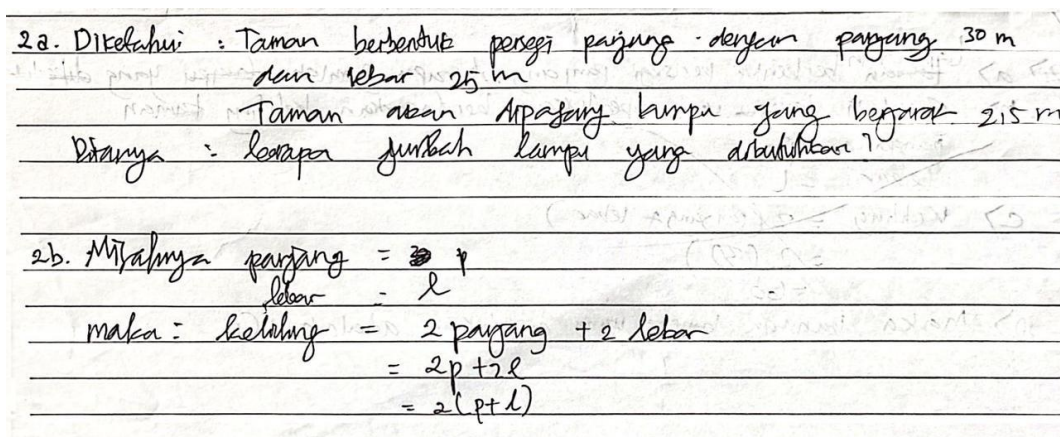 2a. Diketahui : Taman berbentuk persegi panjang dengan panjang 30 m
dan lebar 25 m
Taman akan dipasang lampu yang berjarak 2,5 m
Ditanya : berapa jumlah lampu yang dibutuhkan?
2b. Misalnya panjang = p
lebar = l
maka : keliling = 2 panjang + 2 lebar
= 2p + 2l
= 2(p+l)